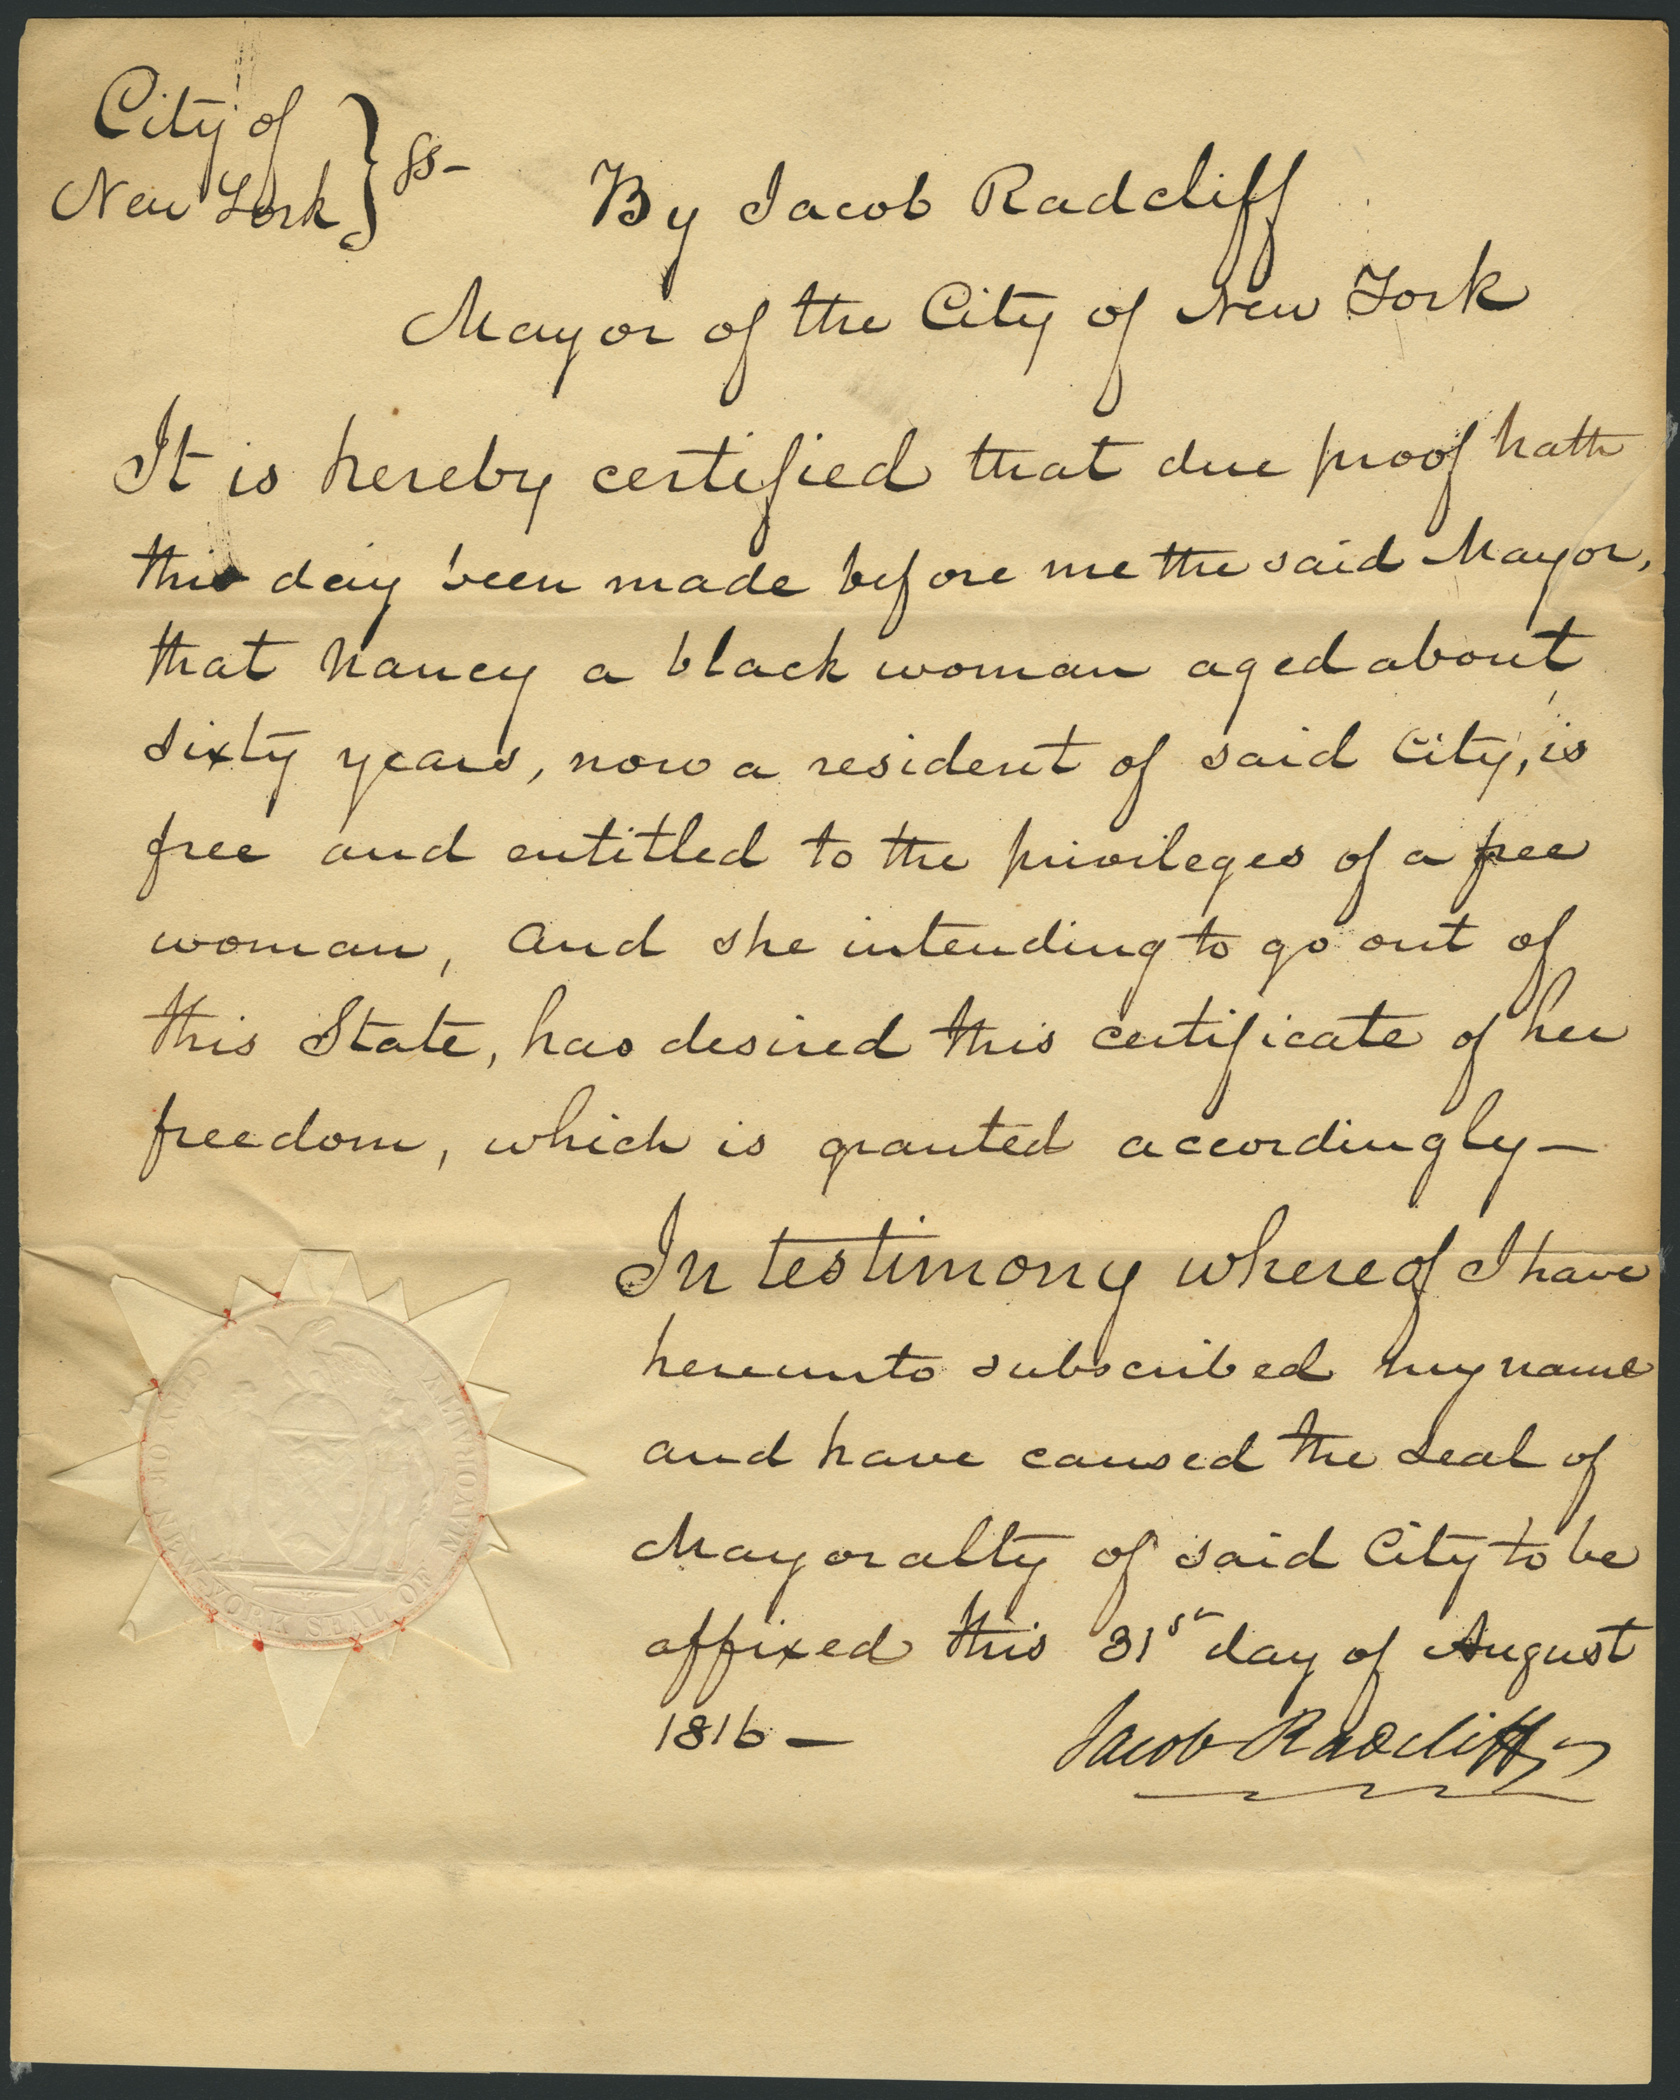 City of
New York } ss-
By Jacob Radcliff
Mayor of the City of New York
It is hereby certified that due proof hath
this day been made before me the said Mayor,
that Nancy a black woman aged about
sixty years, now a resident of said City, is
free and entitled to the privileges of a free
woman, and she intending to go out of
this State, has desired this certificate of her
freedom, which is granted accordingly—
In testimony whereof I have
hereunto subscribed my name
and have caused the seal of
Mayoralty of said City to be
affixed this 31st day of August
1816 —
Jacob Radcliff
CITY OF NEW-YORK SEAL OF MAYORALTY